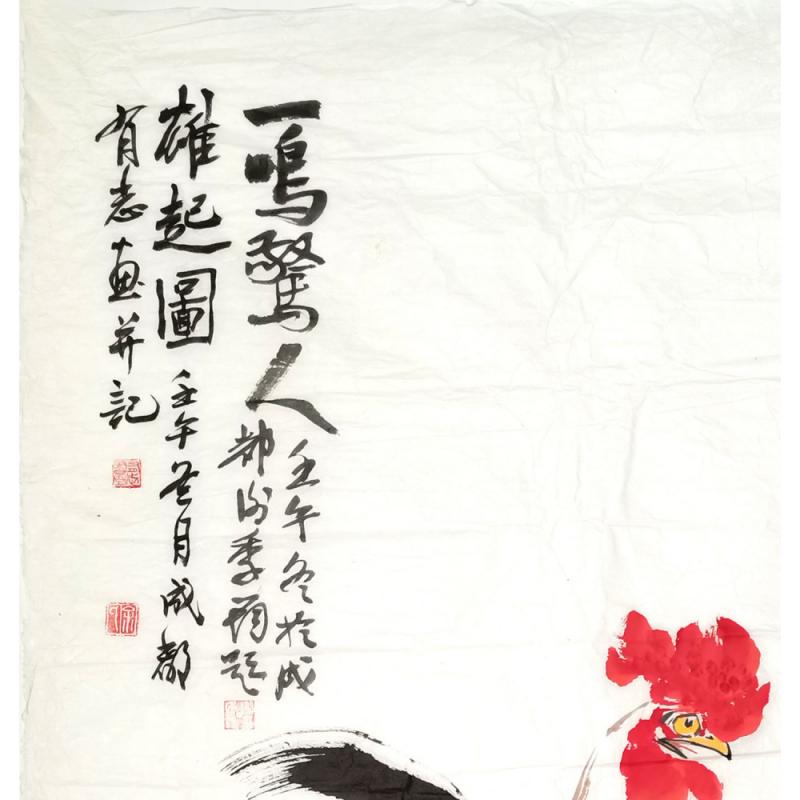 一鳴驚人
壬午冬於成
都謝季筠題
雄起圖 壬午冬月成都
有志畫并記